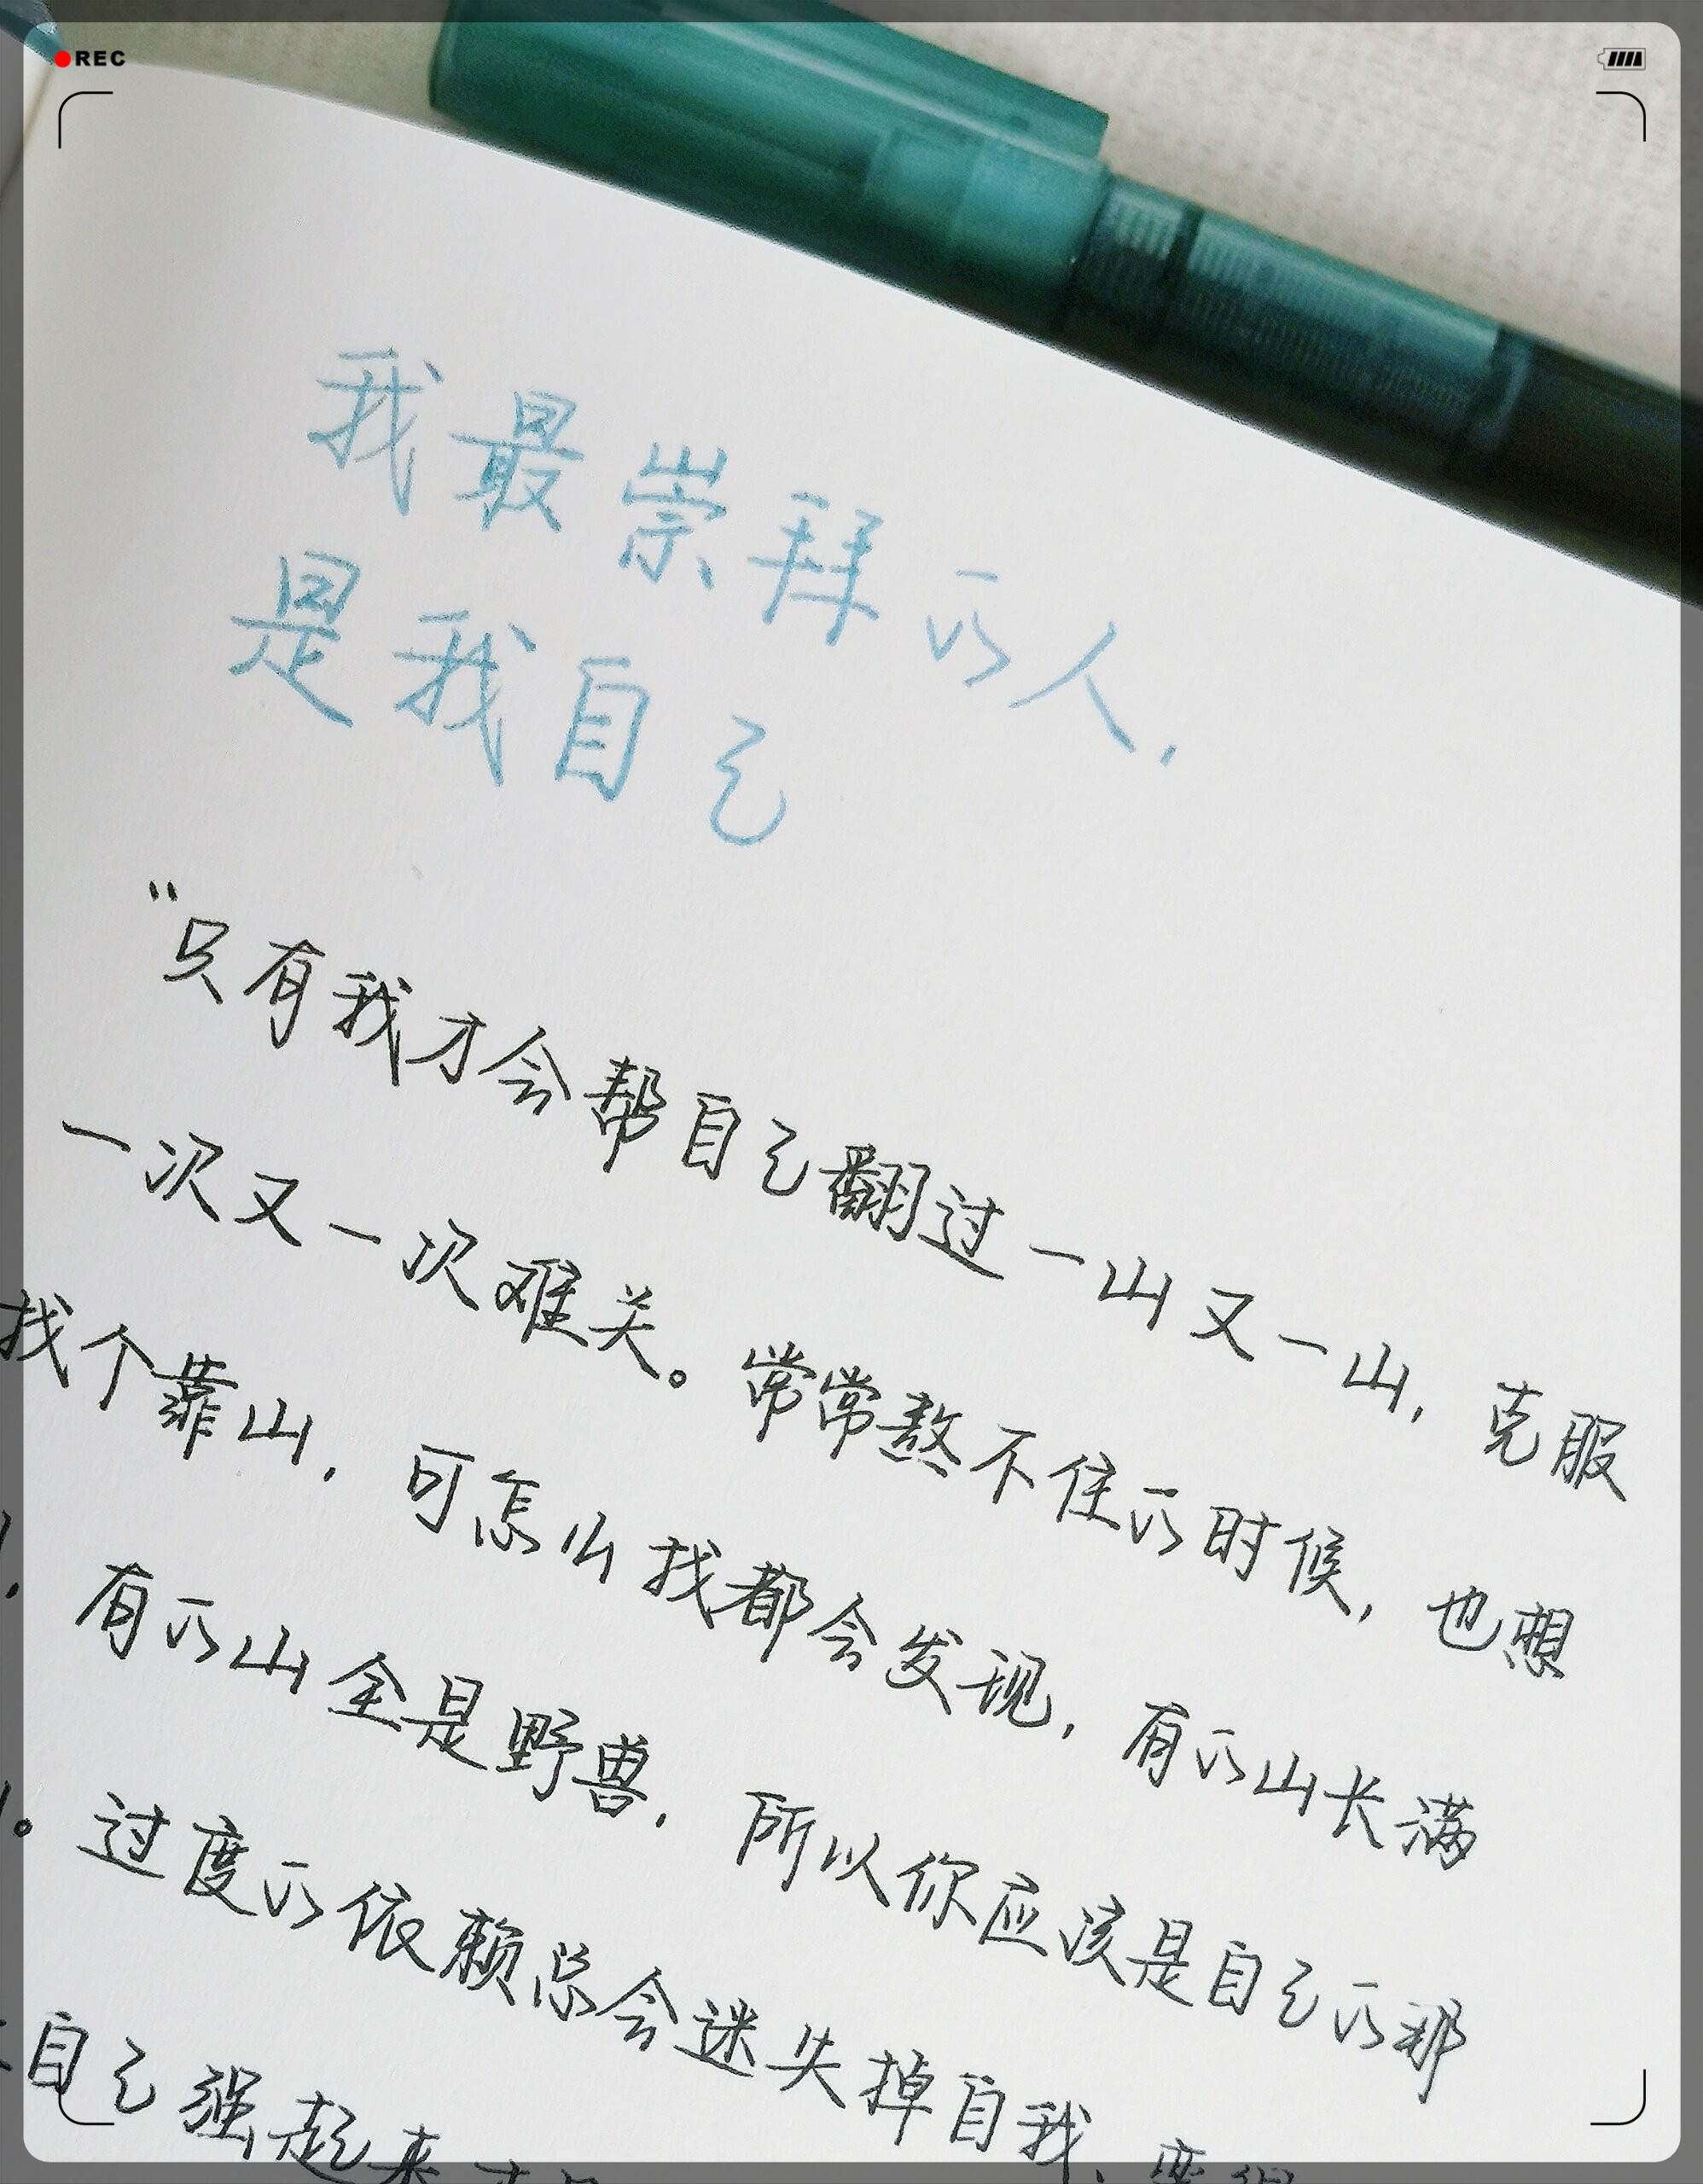 REC
我最崇拜的人，
是我自己
“只有我才会帮自己翻过一山又一山，克服
一次又一次难关。常常熬不住的时候，也想
找个靠山，可怎么找都会发现，有的山长满
，有的山全是野兽，所以你应该是自己的那
。过度的依赖总会迷失掉自我、变得
自己强起来才